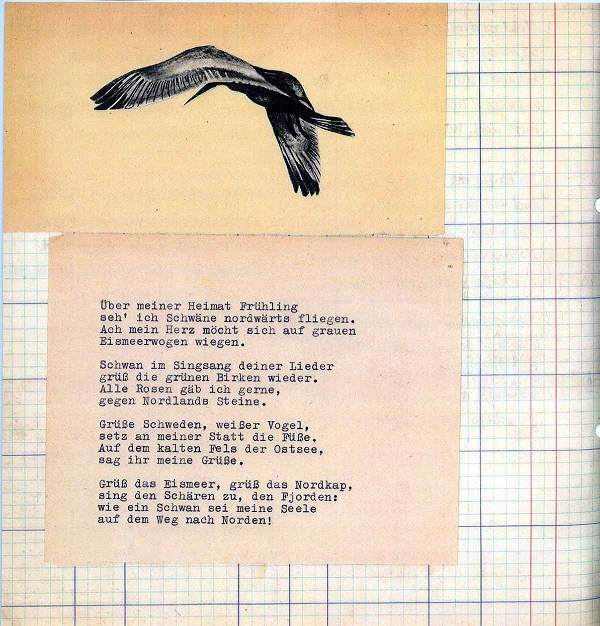 Über meiner Heimat Frühling
seh' ich Schwäne nordwärts fliegen.
Ach mein Herz möcht sich auf grauen
Eismeerwogen wiegen.
Schwan im Singsang deiner Lieder
grüß die grünen Birken wieder.
Alle Rosen gäb ich gerne,
gegen Nordlands Steine.
Grüße Schweden, weißer Vogel,
setz an meiner Statt die Füße.
Auf dem kalten Fels der Ostsee,
sag ihr meine Grüße.
Grüß das Eismeer, grüß das Nordkap,
sing den Schären zu, den Fjorden:
wie ein Schwan sei meine Seele
auf dem Weg nach Norden!